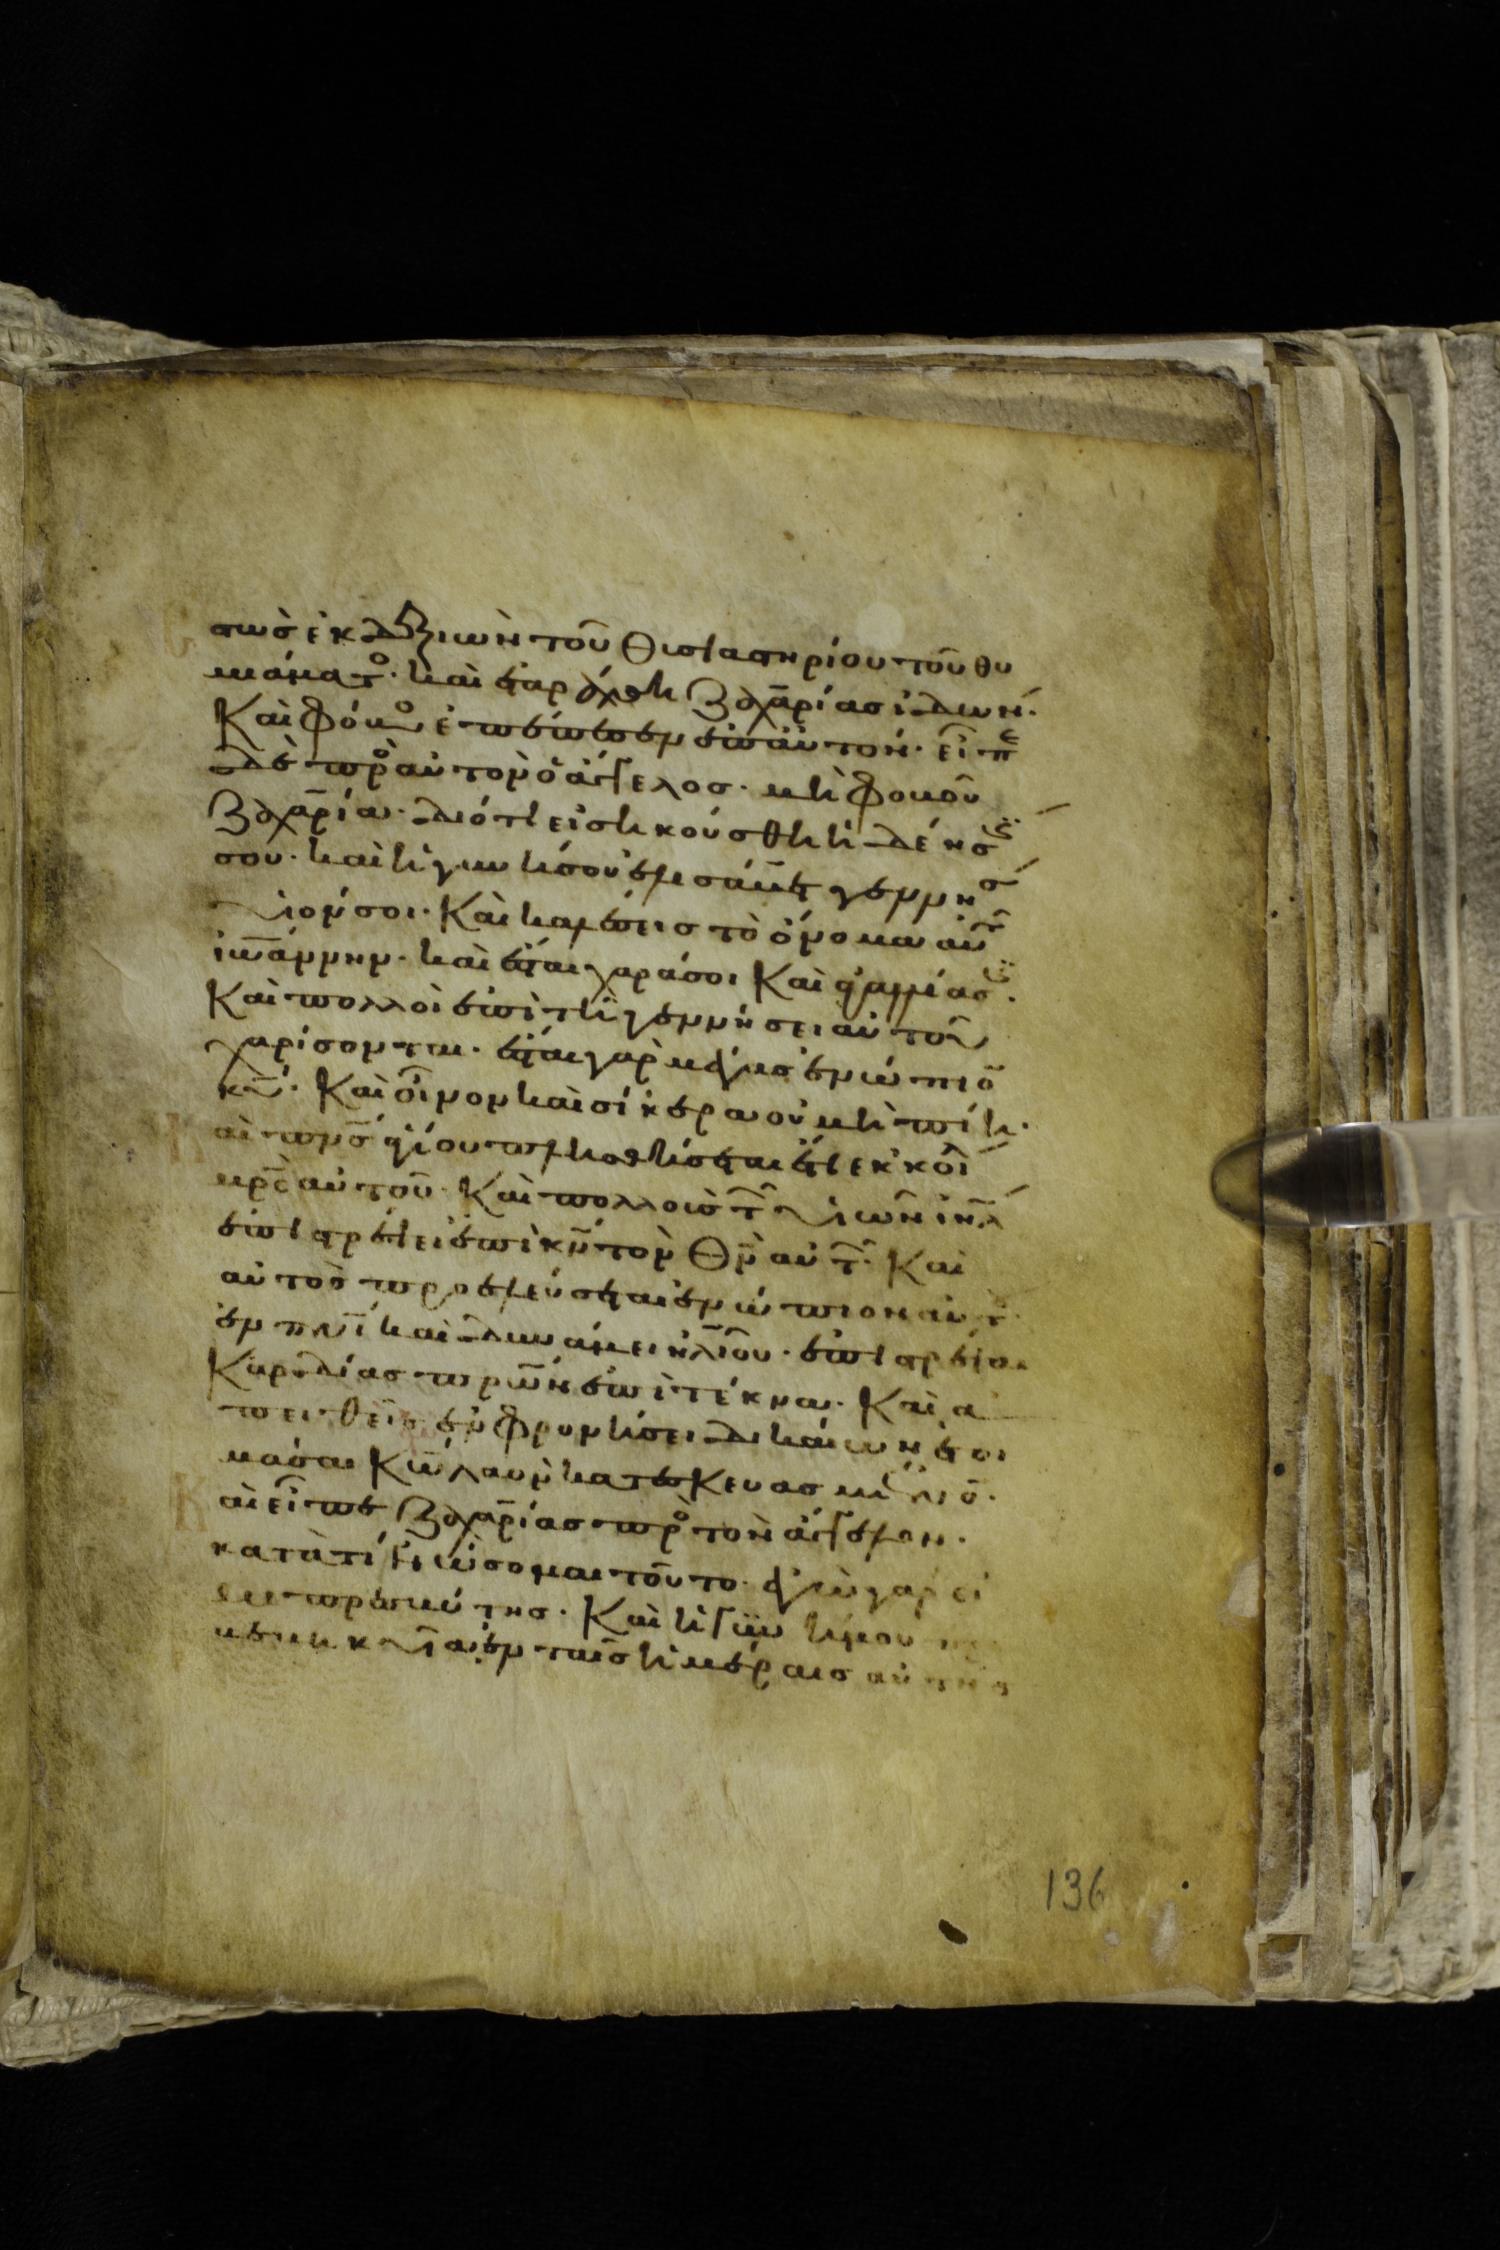 στὼσ ἐκ δεξιῶν τοῦ θυσιαστηρίου τοῦ θυ
μιάματο· καὶ ἐταράχθη ζαχαρίασ ἰδών·
Καὶ φόβο ἐπέπεσεν ἐπ αὐτόν· εἶπε
δὲ πρὸ αὐτὸν ὁ ἄγγελοσ· μὴ φοβοῦ
ζαχαρία· διότι εἰσηκούσθη ἡ δέησϊ
σου· καὶ ἡ γυνή σου ἐλισάβετ γεννήσ
υἱόν σοι· Καὶ καλέσεισ τὸ ὄνομα αὐτ
ἰωάννην· καὶ ἔσται χαρά σοι Καὶ ἀγαλλίασϊ·
Καὶ πολλοὶ ἐπὶ τῆ γεννήσει αὐτοῦ
χαρήσονται· ἔσται γὰρ μέγασ ἐνώπιο
κυ· Καὶ οἶνον καὶ σίκερα οὐ μὴ πίη·
αὶ πνσ ἁγίου πλησθήσεται ἔτι ἐκ κοιλ
μρσ αὐτοῦ· Καὶ πολλοὺσ τ υἱῶν ιηλ
ἐπιστρέψει ἐπὶ κν τὸν θν αὐτ· Καὶ
αὐτὸσ προελεύσεται ἐνώπιον αὐτ·
ἐν πνι καὶ δυνάμει ηλιοῦ· ἐπιστρέψαι
Καρδίασ πρων ἐπὶ τέκνα· Καὶ ἀ
πειθεῖσ ἐν φρονήσει δικαίων ἑτοι
μάσαι Κω λαὸν κατεσκευασμένο·
αὶ εἶπε ζαχαρίασ πρὸ τὸν ἄγγελον·
κατὰ τί γνώσομαι τοῦτο· ἐγὼ γάρ εἰ
μι πρεσβύτησ· Καὶ ἡ γυνή μου προ
βεβηκυῖα ἐν ταῖσ ἡμέραισ αὐτῆσ
136